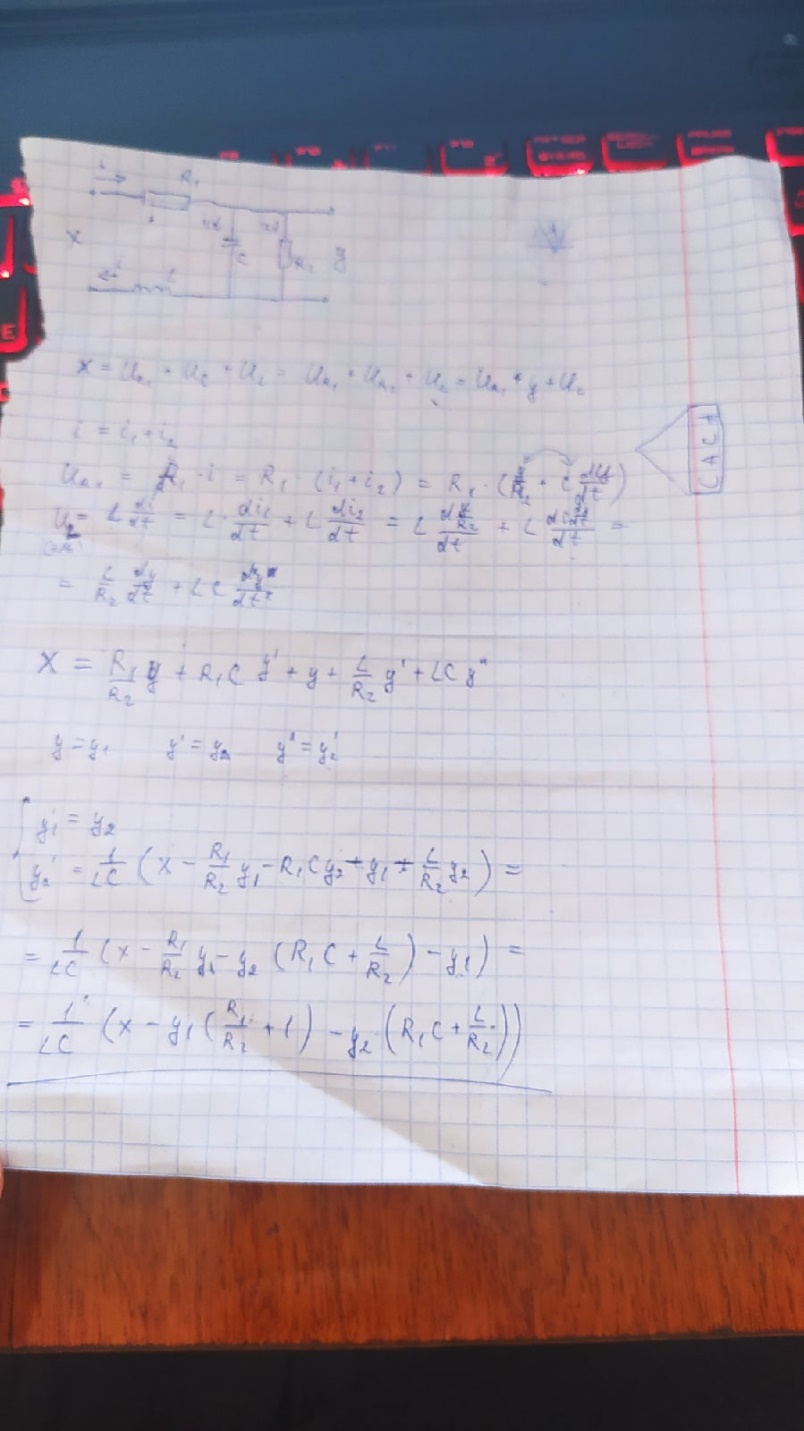 i
R₁
x
i₂
i₁
C
R₂
y
i
L
x = U_R₁ + U_C + U_L = U_R₁ + U_R₂ + U_L = U_R₁ + y + U_L
i = i₁ + i₂
U_R₁ = R₁ · i = R₁ · (i₁ + i₂) = R₁ · (y/R₂ + C dy/dt)
U_L = L di/dt = L · di₁/dt + L di₂/dt = L
= L/R₂ dy/dt + LC d²y/dt²
X = R₁/R₂ y + R₁C y' + y + L/R₂ y' + LC y''
y = y₁ y' = y₂ y'' = y₂'
y₁' = y₂
y₂' = 1/LC (x - R₁/R₂ y₁ - R₁Cy₂ - y₁ - L/R₂ y₂) =
= 1/LC (x - R₁/R₂ y₁ - y₂ (R₁C + L/R₂) - y₁) =
= 1/LC (x - y₁ (R₁/R₂ + 1) - y₂ (R₁C + L/R₂))